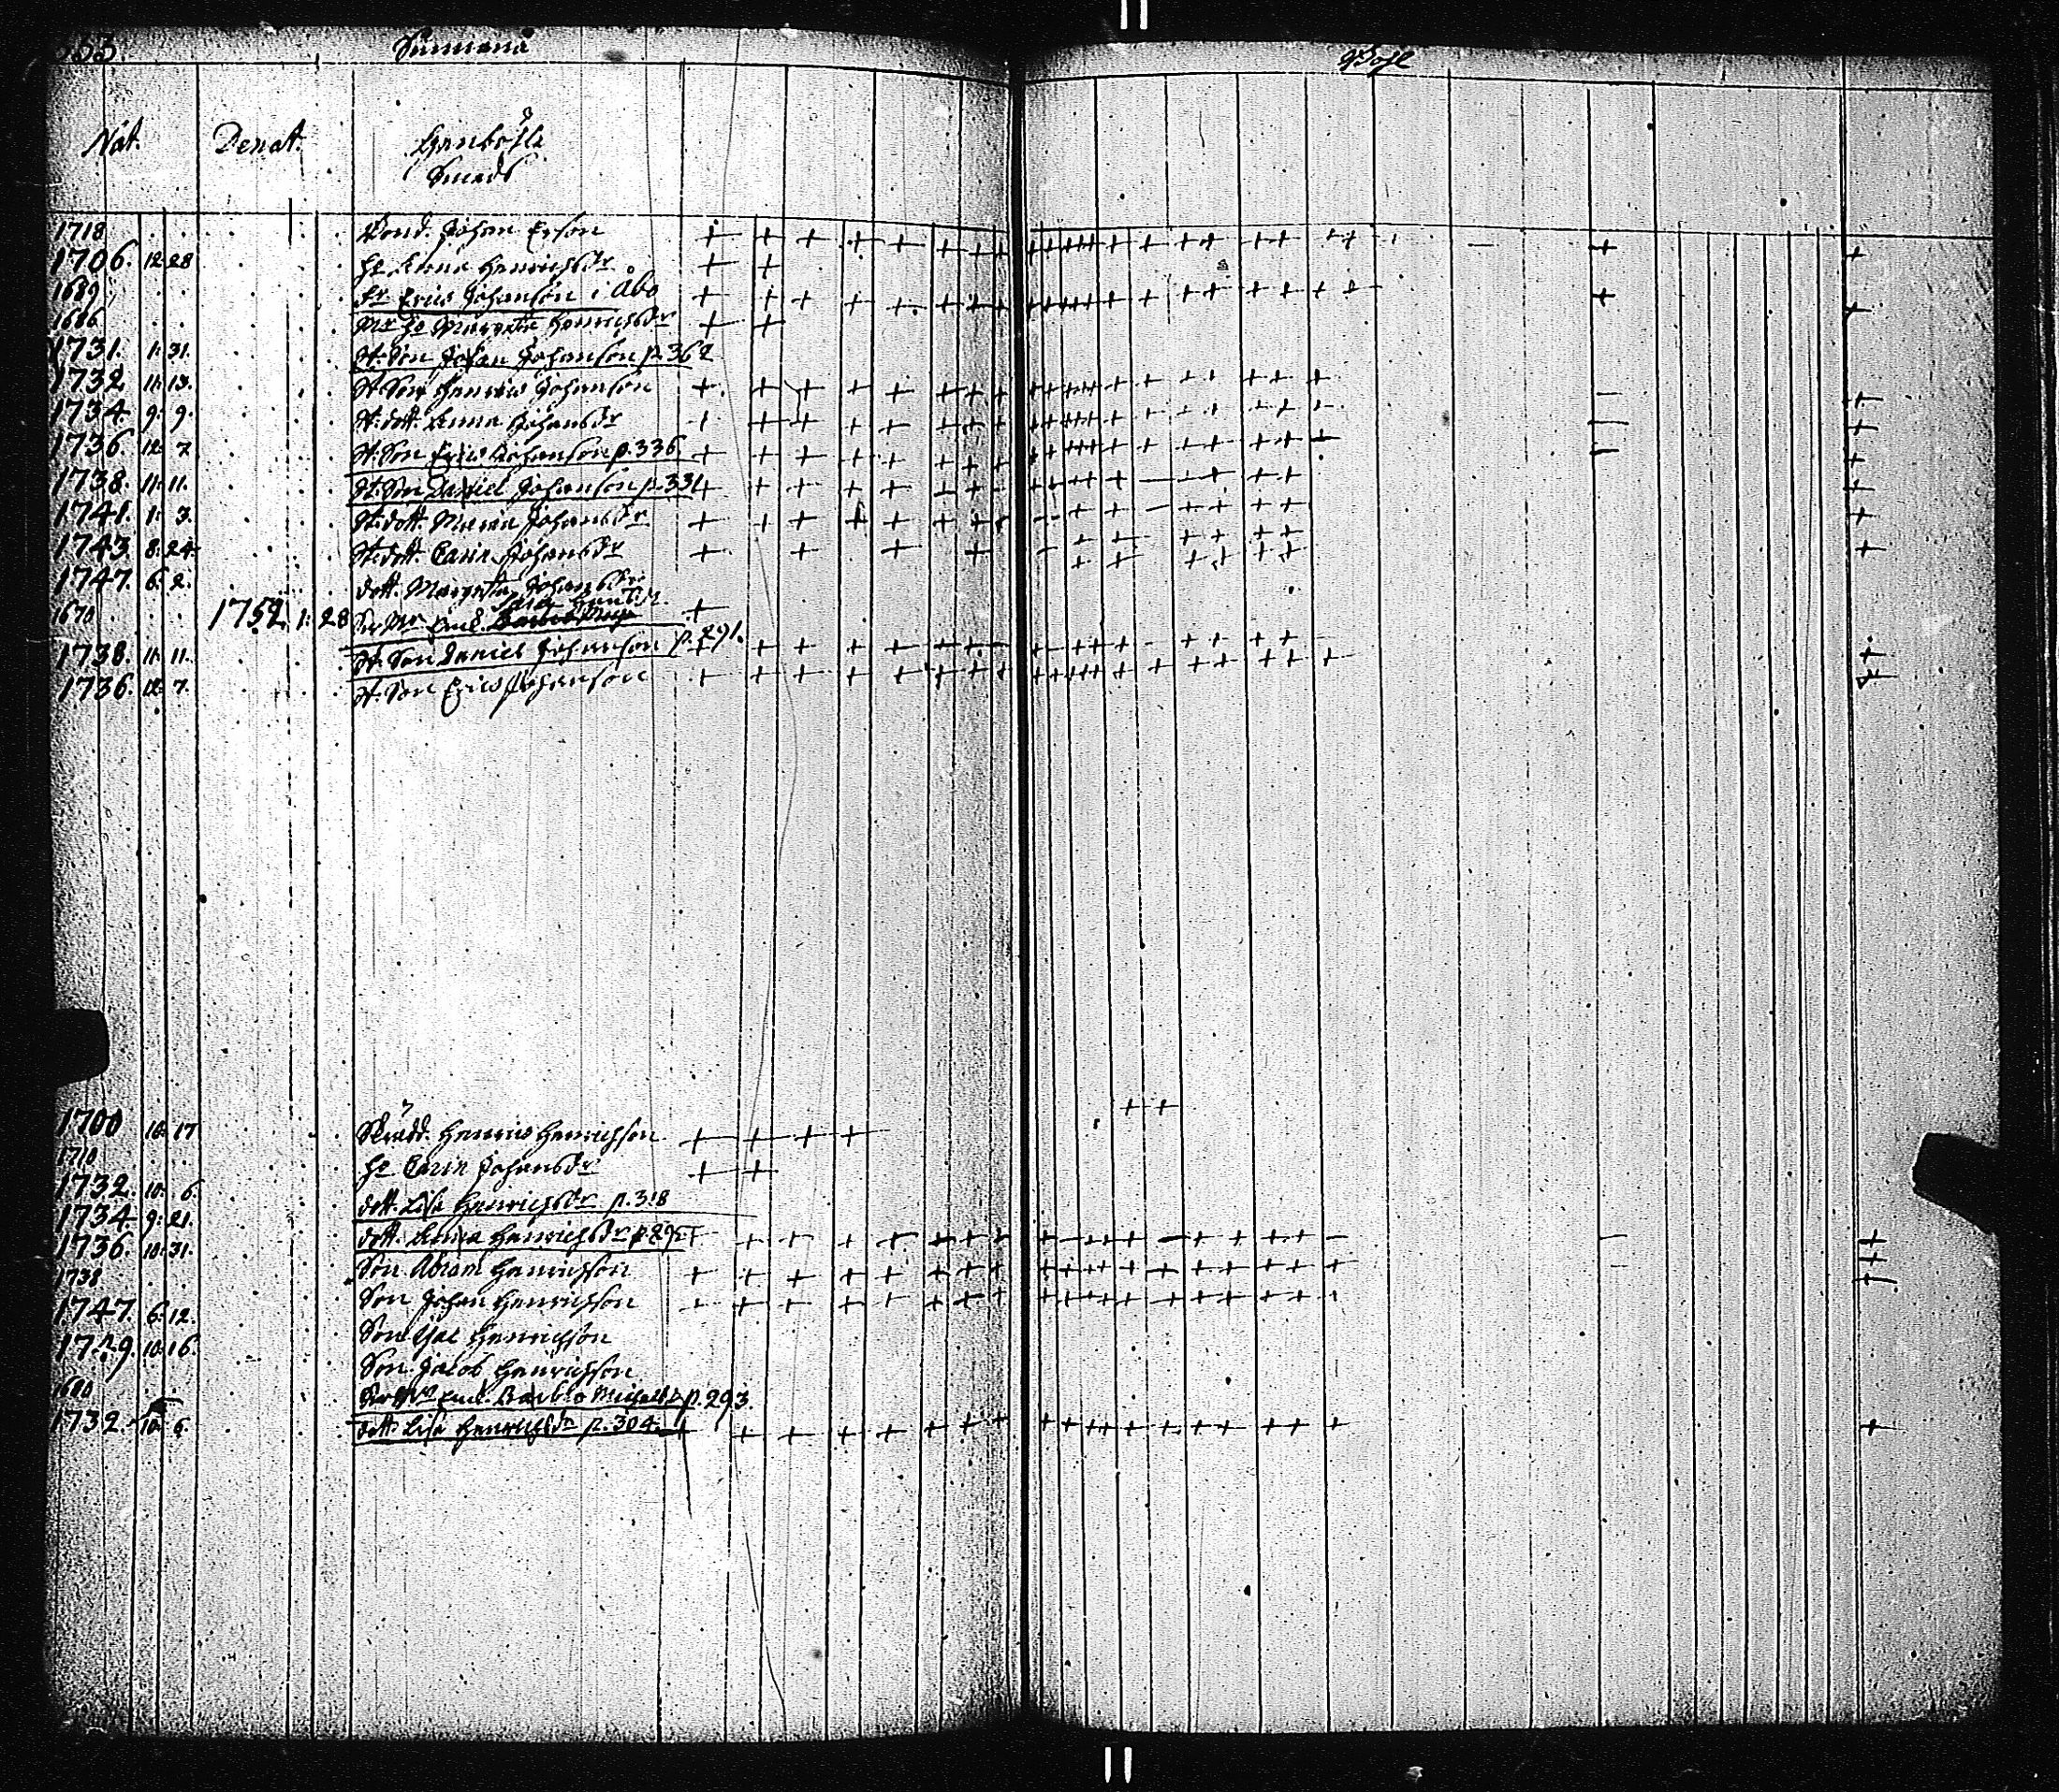 Bohl
Nat. Denat.
Smeds
1718 Bond. Johan Erson
1706. 12 28 Hu Anna Henrichsdr
1689 Fr Erics Johanson i Åbo
1686 Mr Hu Margeta Henrichsdr
1731. 1: 31. St. Son Johan Johanson p. 362
1732 11: 13. St. Son Henrics Johanson
1734 9: 9. St. dott. Anna Johansdr
1736 12: 7 St. Son Erics Johanson p. 336
1738. 11: 11. St. Son Daniel Johanson p. 331
1741. 1: 3. St. dott. Maria Johansdr
1743 8: 24. St. dott. Carin Johansdr
1747. 6: 2. dott. Margeta Johansdr
1670 1752 1: 28
1738. 11: 11. St. Son Daniel Johanson p. 291.
1736. 12: 7. St. Son Erics Johanson
1700 10: 17 Skrädd. Henrics Henrichson
1710 Hu Carin Johansdr
1732. 10: 6. dott. Lisa Henrichsdr p. 318
1734 9: 21. dott. Anna Henrichsdr
1736. 10: 31. Son Abram Henrichson
1738 Son Johan Henrichson
1747. 6: 12. Son Henrichson
10: 16. Son Jacob Henrichson
1680 p. 293
1732. 10: 6. dott. Lisa Henrichsdr p. 304.